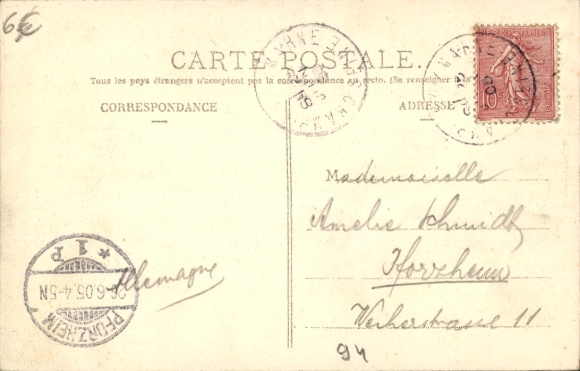 6€
CARTE POSTALE.
Tous les pays étrangers n'acceptent pas la correspondance au recto. (Se renseigner
CORRESPONDANCE
ADRESSE
MARNE
MARNE
10
Mademoiselle
Amelie Schmidt
Pforzheim
Weiherstrasse 11
Allemagne
PFORZHEIM
26.6.05.4-5N
* 1 P
94